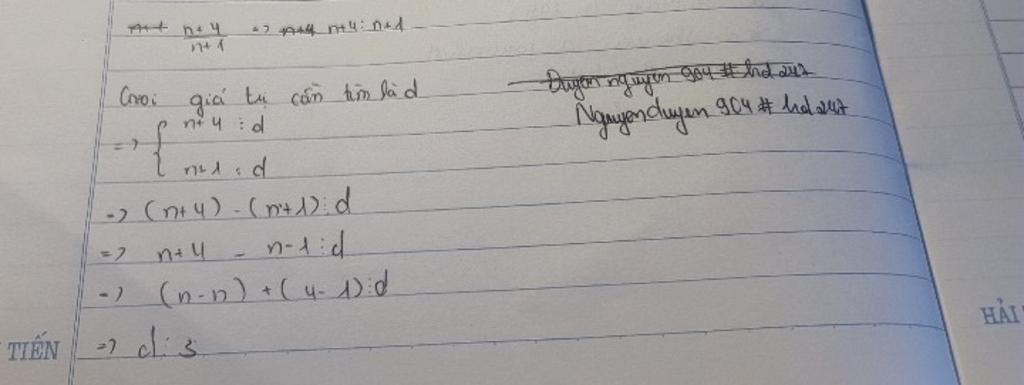 n+4/n+1 => n+4 ⋮ n+1
Gọi giá trị cần tìm là d
Duyennguyen904#hd247
Nguyenduyen904#hd247
=> { n+4 ⋮ d
n+1 ⋮ d
=> (n+4) - (n+1) ⋮ d
=> n+4 - n-1 ⋮ d
=> (n-n) + (4-1) ⋮ d
=> d ⋮ 3
TIẾN
HẢI